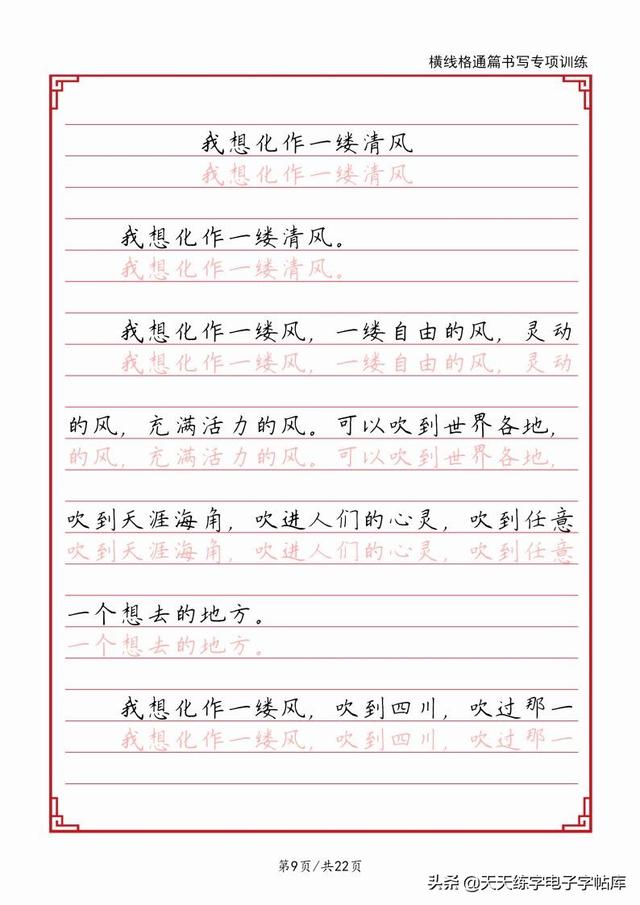 横线格通篇书写专项训练
我想化作一缕清风
我想化作一缕清风
我想化作一缕清风。
我想化作一缕清风。
我想化作一缕风，一缕自由的风，灵动
我想化作一缕风，一缕自由的风，灵动
的风，充满活力的风。可以吹到世界各地，
的风，充满活力的风。可以吹到世界各地，
吹到天涯海角，吹进人们的心灵，吹到任意
吹到天涯海角，吹进人们的心灵，吹到任意
一个想去的地方。
一个想去的地方。
我想化作一缕风，吹到四川，吹过那一
我想化作一缕风，吹到四川，吹过那一
第9页/共22页
头条 @天天练字电子字帖库